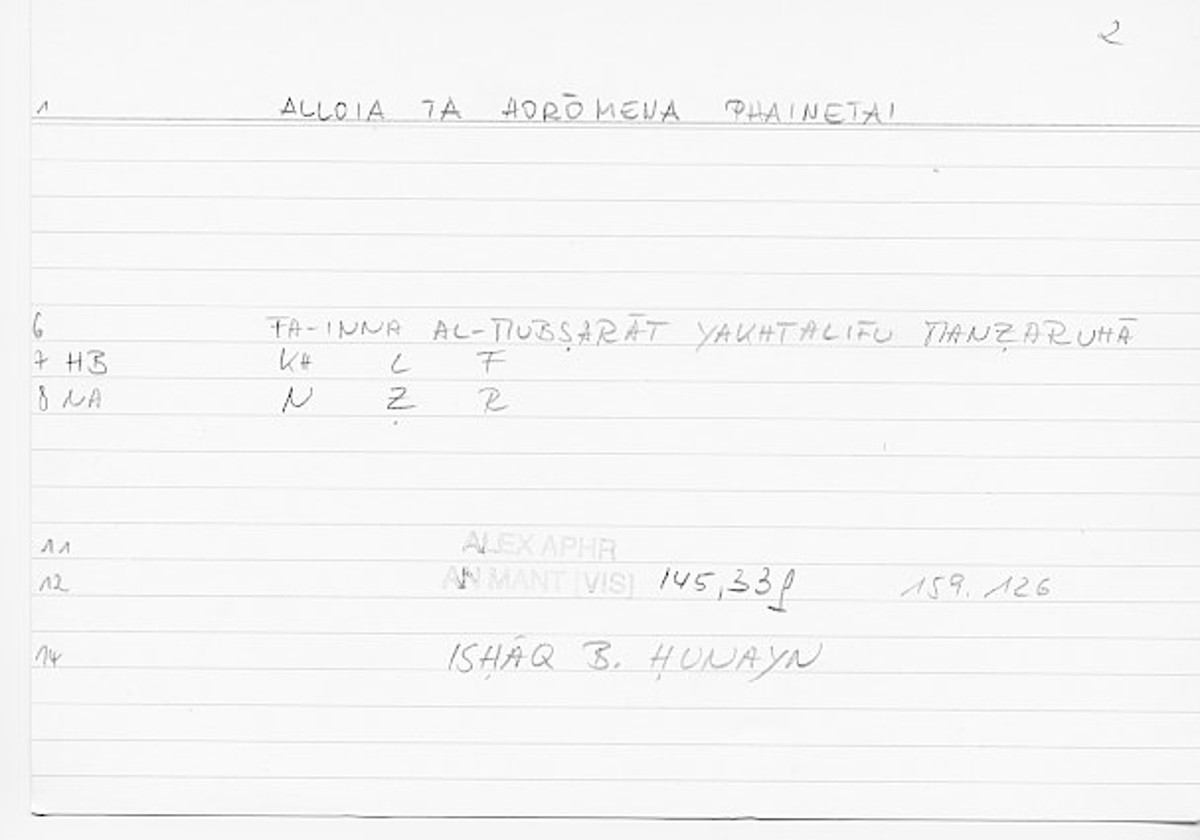 2
1 ALLOIA TA HORŌMENA PHAINETAI
6 FA-INNA AL-MUBṢARĀT YAKHTALIFU MANẒARUHĀ
7 HB KH L F
8 NA N Ẓ R
11 ALEX APHR
12 AN MANT [VIS] 145,33f 159.126
14 ISḤĀQ B. ḤUNAYN